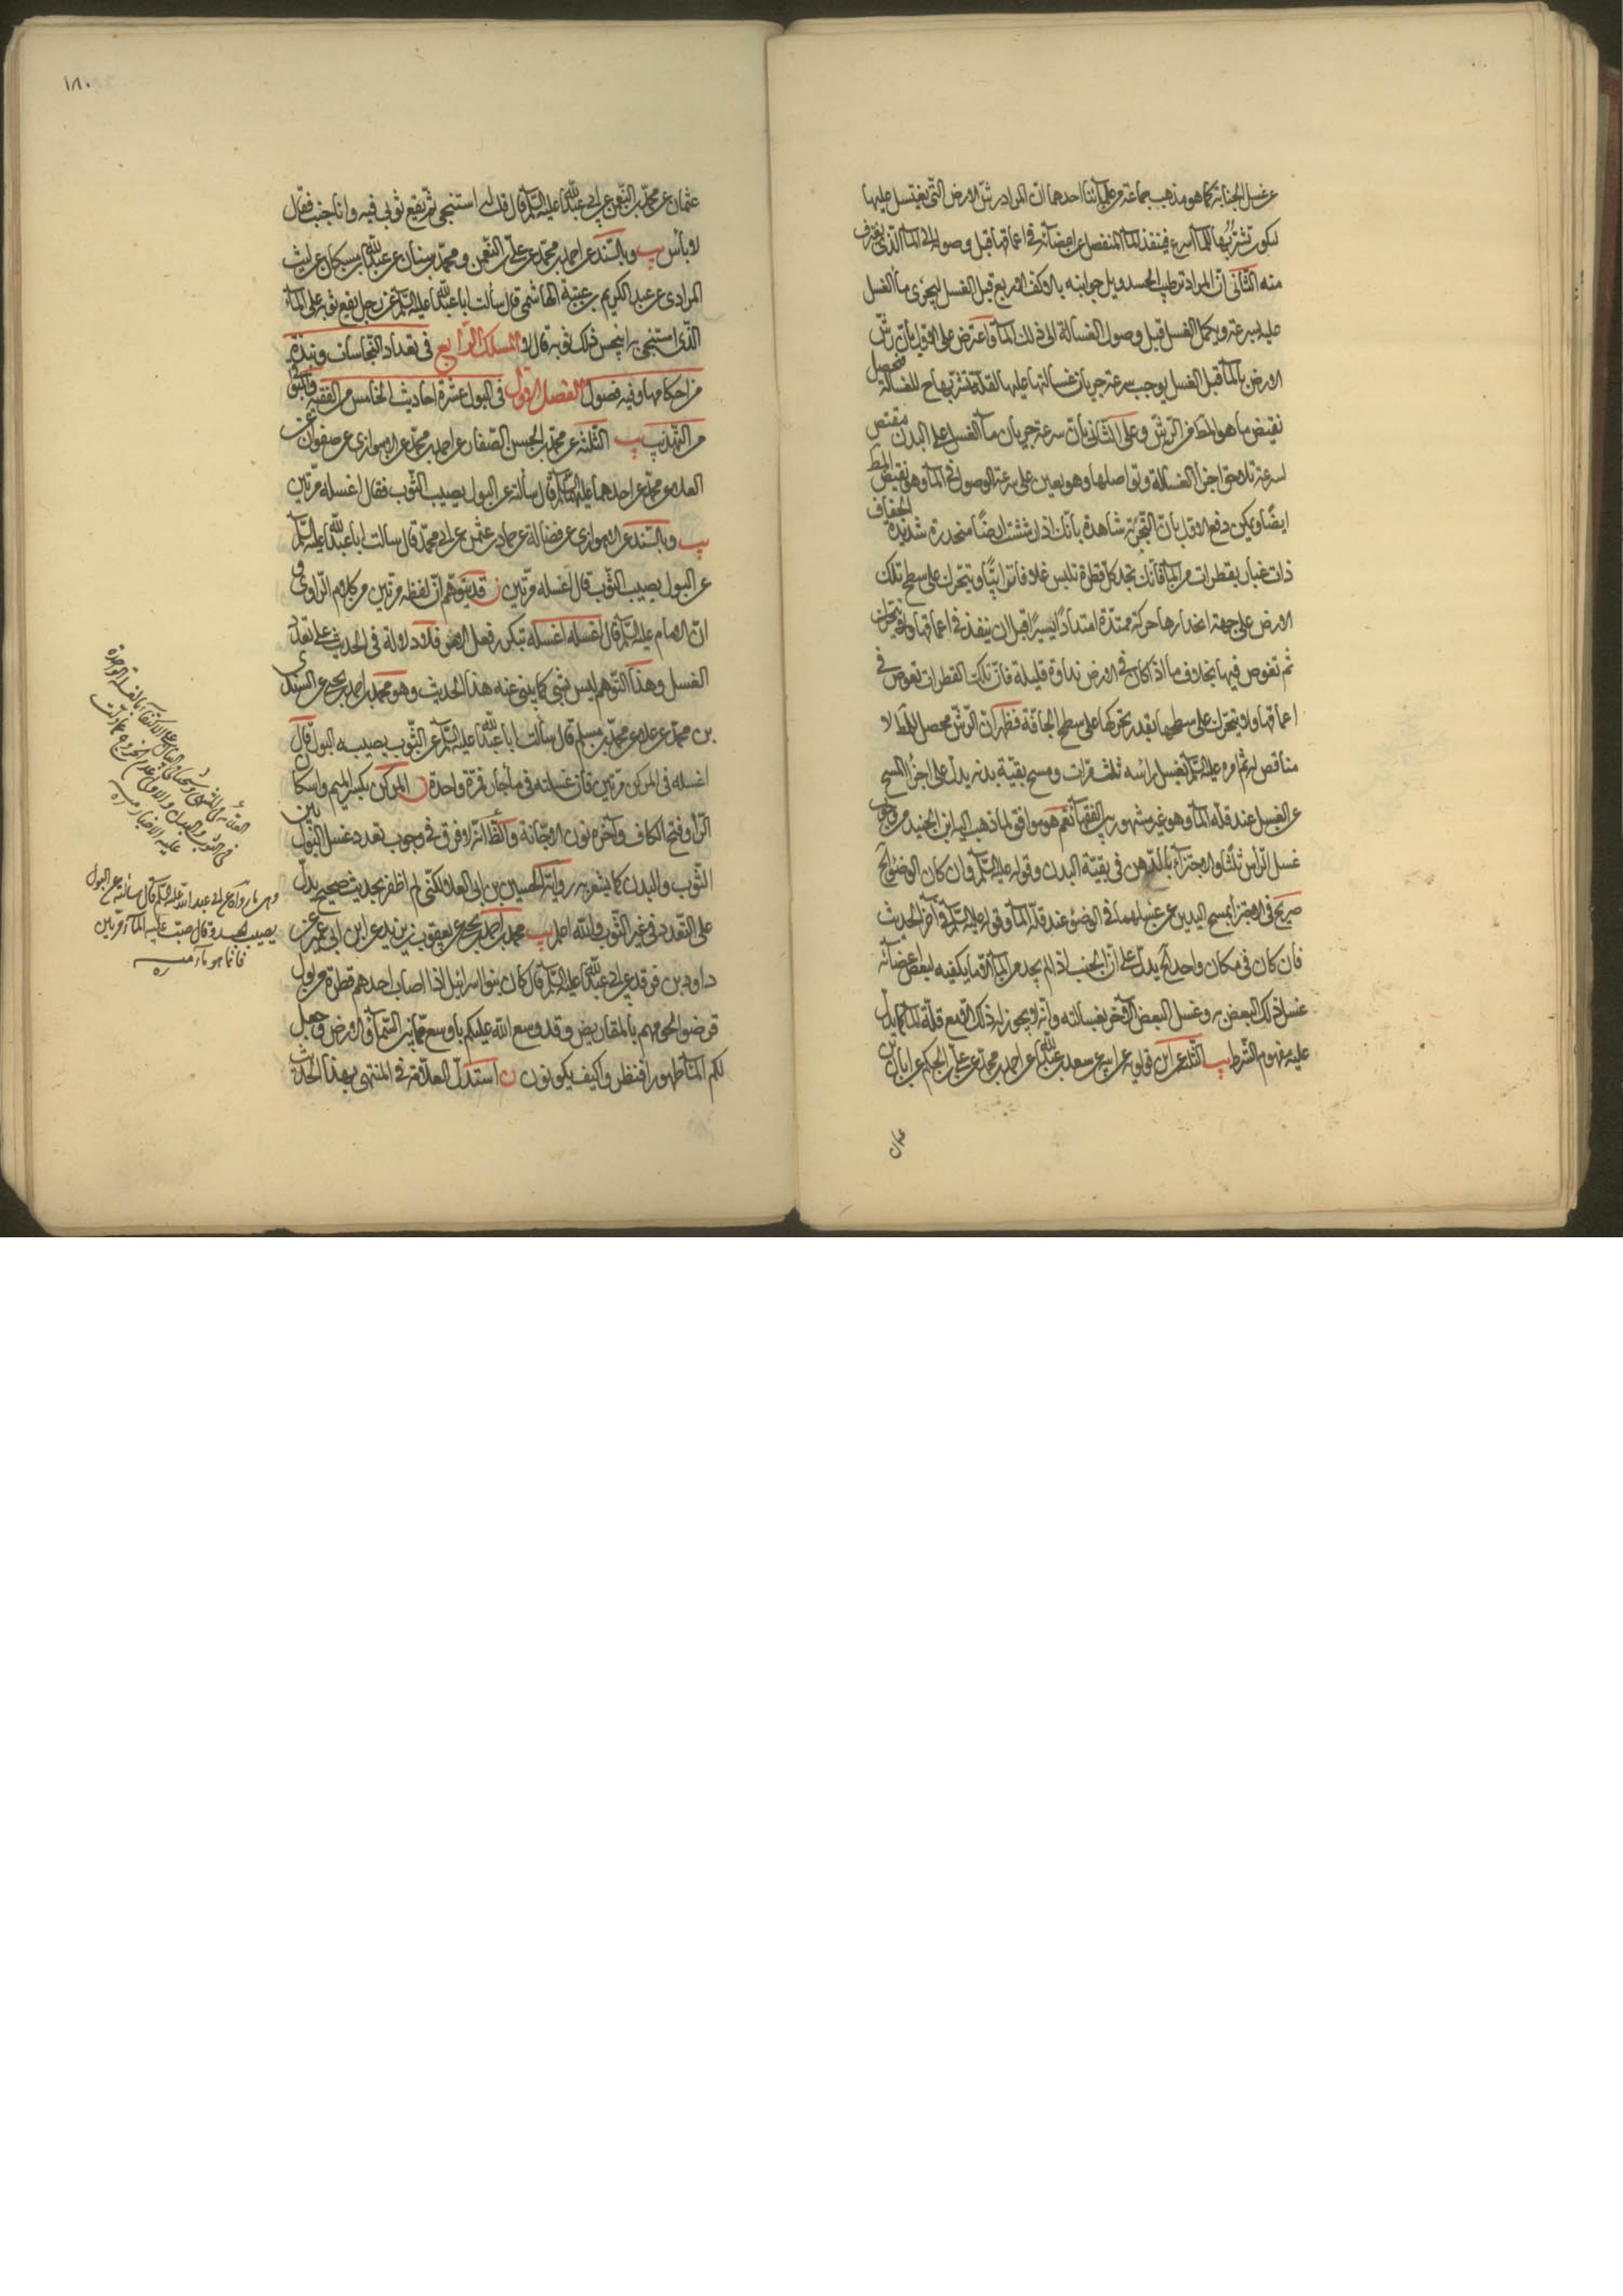 عن غسل الجنابة كما هو مذهب جماعة من علمائنا احدهما انّ المراد رشّ الارض التى يغتسل عليها
ليكون تشرّبها للماء اسرع فينفذ الماء المنفصل عن اعضائه فى اعماقها قبل وصوله الى الماء الذى يغترف
منه الثانى انّ المراد ترطيب الجسد وبلّ جوانبه بالاكفّ الاربع قبل الغسل ليجرى ماء الغسل
عليه بسرعة ويكمل الغسل قبل وصول الغسالة الى ذلك الماء واعترض على الاوّل بانّ رشّ
الارض بالماء قبل الغسل يوجب سرعة جريان غسالتها عليها لقلّة تشرّبها ح للغسالة فيحصل
نقيض ما هو المط من الرشّ وعلى الثانى بانّ سرعة جريان ماء الغسل على البدن مقتض
لسرعة تلاحق اجزاء الغسالة وتواصلها وهو يعين على سرعة الوصول الى الماء وهو نقيض المط
ايضا ويمكن دفع الاوّل بانّ التجربة شاهدة بانّك اذا رششت ارضًا منحدرة شديدة الجفاف
ذات غبار بقطرات من الماء فانّك تجد كلّ قطرة تلبس غلافا ترابيًّا وتتحرّك على سطح تلك
الارض على جهة انحدارها حركة ممتدّة امتدادًا يسيرًا قبل ان ينفذ فى اعماقها
ثم تغوص فيها بخلاف ما اذا كان فى الارض نداوة قليلة فانّ تلك القطرات تغوص فى
اعماقها ولا تتحرّك على سطحها بقدر تحرّكها على سطح الجافّة فظهر انّ الرشّ محصل للمط لا
مناقض له ثم امره عليه السّلم بغسل رأسه ثلث مرّات ومسح بقيّة بدنه يدلّ على اجزاء المسح
عن الغسل عند قلّة الماء وهو غير مشهور بين الفقهاء نعم هو موافق لما ذهب اليه ابن الجنيد من وجوب
غسل الرأس ثلثا والاجتزاء بالدّهن فى بقيّة البدن وقوله عليه السّلم وان كان الوضوء الخ
صريح فى الاجتزاء بمسح اليدين عن غسلهما فى الوضوء عند قلّة الماء وقوله عليه السّلم فى آخر الحديث
فان كان فى مكان واحد الخ يدلّ على انّ الجنب اذا لم يجد من الماء الّا ما يكفيه لبعض اعضائه
غسل ذلك البعض به وغسل البعض الآخر بغسالته وانّه لا يجوز له ذلك الّا مع قلّة الماء كما يدلّ
عليه مفهوم الشرط يب الثلثة عن ابن قولويه عن ابيه عن سعد بن عبد الله عن احمد بن محمّد عن علىّ بن الحكم عن ابان بن
عثمان
١٨٠
عثمان عن محمّد بن النّعمن عن ابى عبد الله عليه السّلم قال قلت له استنجى ثم يقع ثوبى فيه وانا جنب فقال
لا بأس يب وبالسّند عن احمد بن محمّد عن علىّ بن النّعمن ومحمّد بن سنان عن عبد الله بن مسكان عن ليث
المرادى عن عبد الكريم بن عتبة الهاشمى قال سألت ابا عبد الله عليه السّلم عن رجل يقع ثوبه على الماء
الذى استنجى به اينجس ذلك ثوبه قال لا المسلك الرّابع فى تعداد النّجاسات ونبذة
من احكامها وفيه فصول الفصل الاوّل فى البول عشرة احاديث الخامس من الفقيه والبواقى
من التّهذيب يب الثّلثة عن محمّد بن الحسن الصّفار عن احمد بن محمّد عن الاهوازى عن صفوان عن
العلا عن محمّد عن احدهما عليهما السّلم قال سألته عن البول يصيب الثّوب فقال اغسله مرّتين
يب وبالسّند عن الاهوازى عن فضالة عن حماد بن عثمن عن ابى محمّد قال سألت ابا عبد الله عليه السّلم
عن البول يصيب الثّوب قال اغسله مرّتين ن قد يتوهّم انّ لفظه مرّتين من كلام الرّاوى و
انّ الامام عليه السّلم قال اغسله اغسله بتكرير فعل الامر فلا دلالة فى الحديث على تعدّد
الغسل وهذا التّوهم ليس بشى كما ينبى عنه هذا الحديث وهو محمّد بن احمد بن يحيى عن السّندى
بن محمّد عن علا عن محمّد بن مسلم قال سألت ابا عبد الله عليه السّلم عن الثّوب يصيبه البول قال
اغسله فى المركن مرّتين فان غسلته فى ماء جار فمرّة واحدة ن المركن بكسر الميم واسكان
الرّاء وفتح الكاف وآخره نون الاجّانة والظّ انّه لا فرق فى وجوب تعدد غسل البول بين
الثّوب والبدن كما يشعر به رواية الحسين بن ابى العلا ولكنّى لم اظفر بحديث صحيح يدلّ
على التّعدد فى غير الثّوب والله اعلم يب محمد بن احمد بن يحيى عن يعقوب بن يزيد عن ابن ابى عمير عن
داود بن فرقد عن ابى عبد الله عليه السّلم قال كان بنو اسرائيل اذا اصاب احدهم قطرة من بول
قرضوا لحومهم بالمقاريض وقد وسع الله عليكم باوسع ممّا بين السّماء والارض وجعل
لكم الماء طهورا فانظروا كيف تكونون ن استدلّ العلّامة فى المنتهى بهذا الحديث
وهى ما رواه عن ابى عبد الله عليه السّلم قال سألته عن البول
يصيب الجسد قال صبّ عليه الماء مرّتين
فانّما هو ماء منه
ره